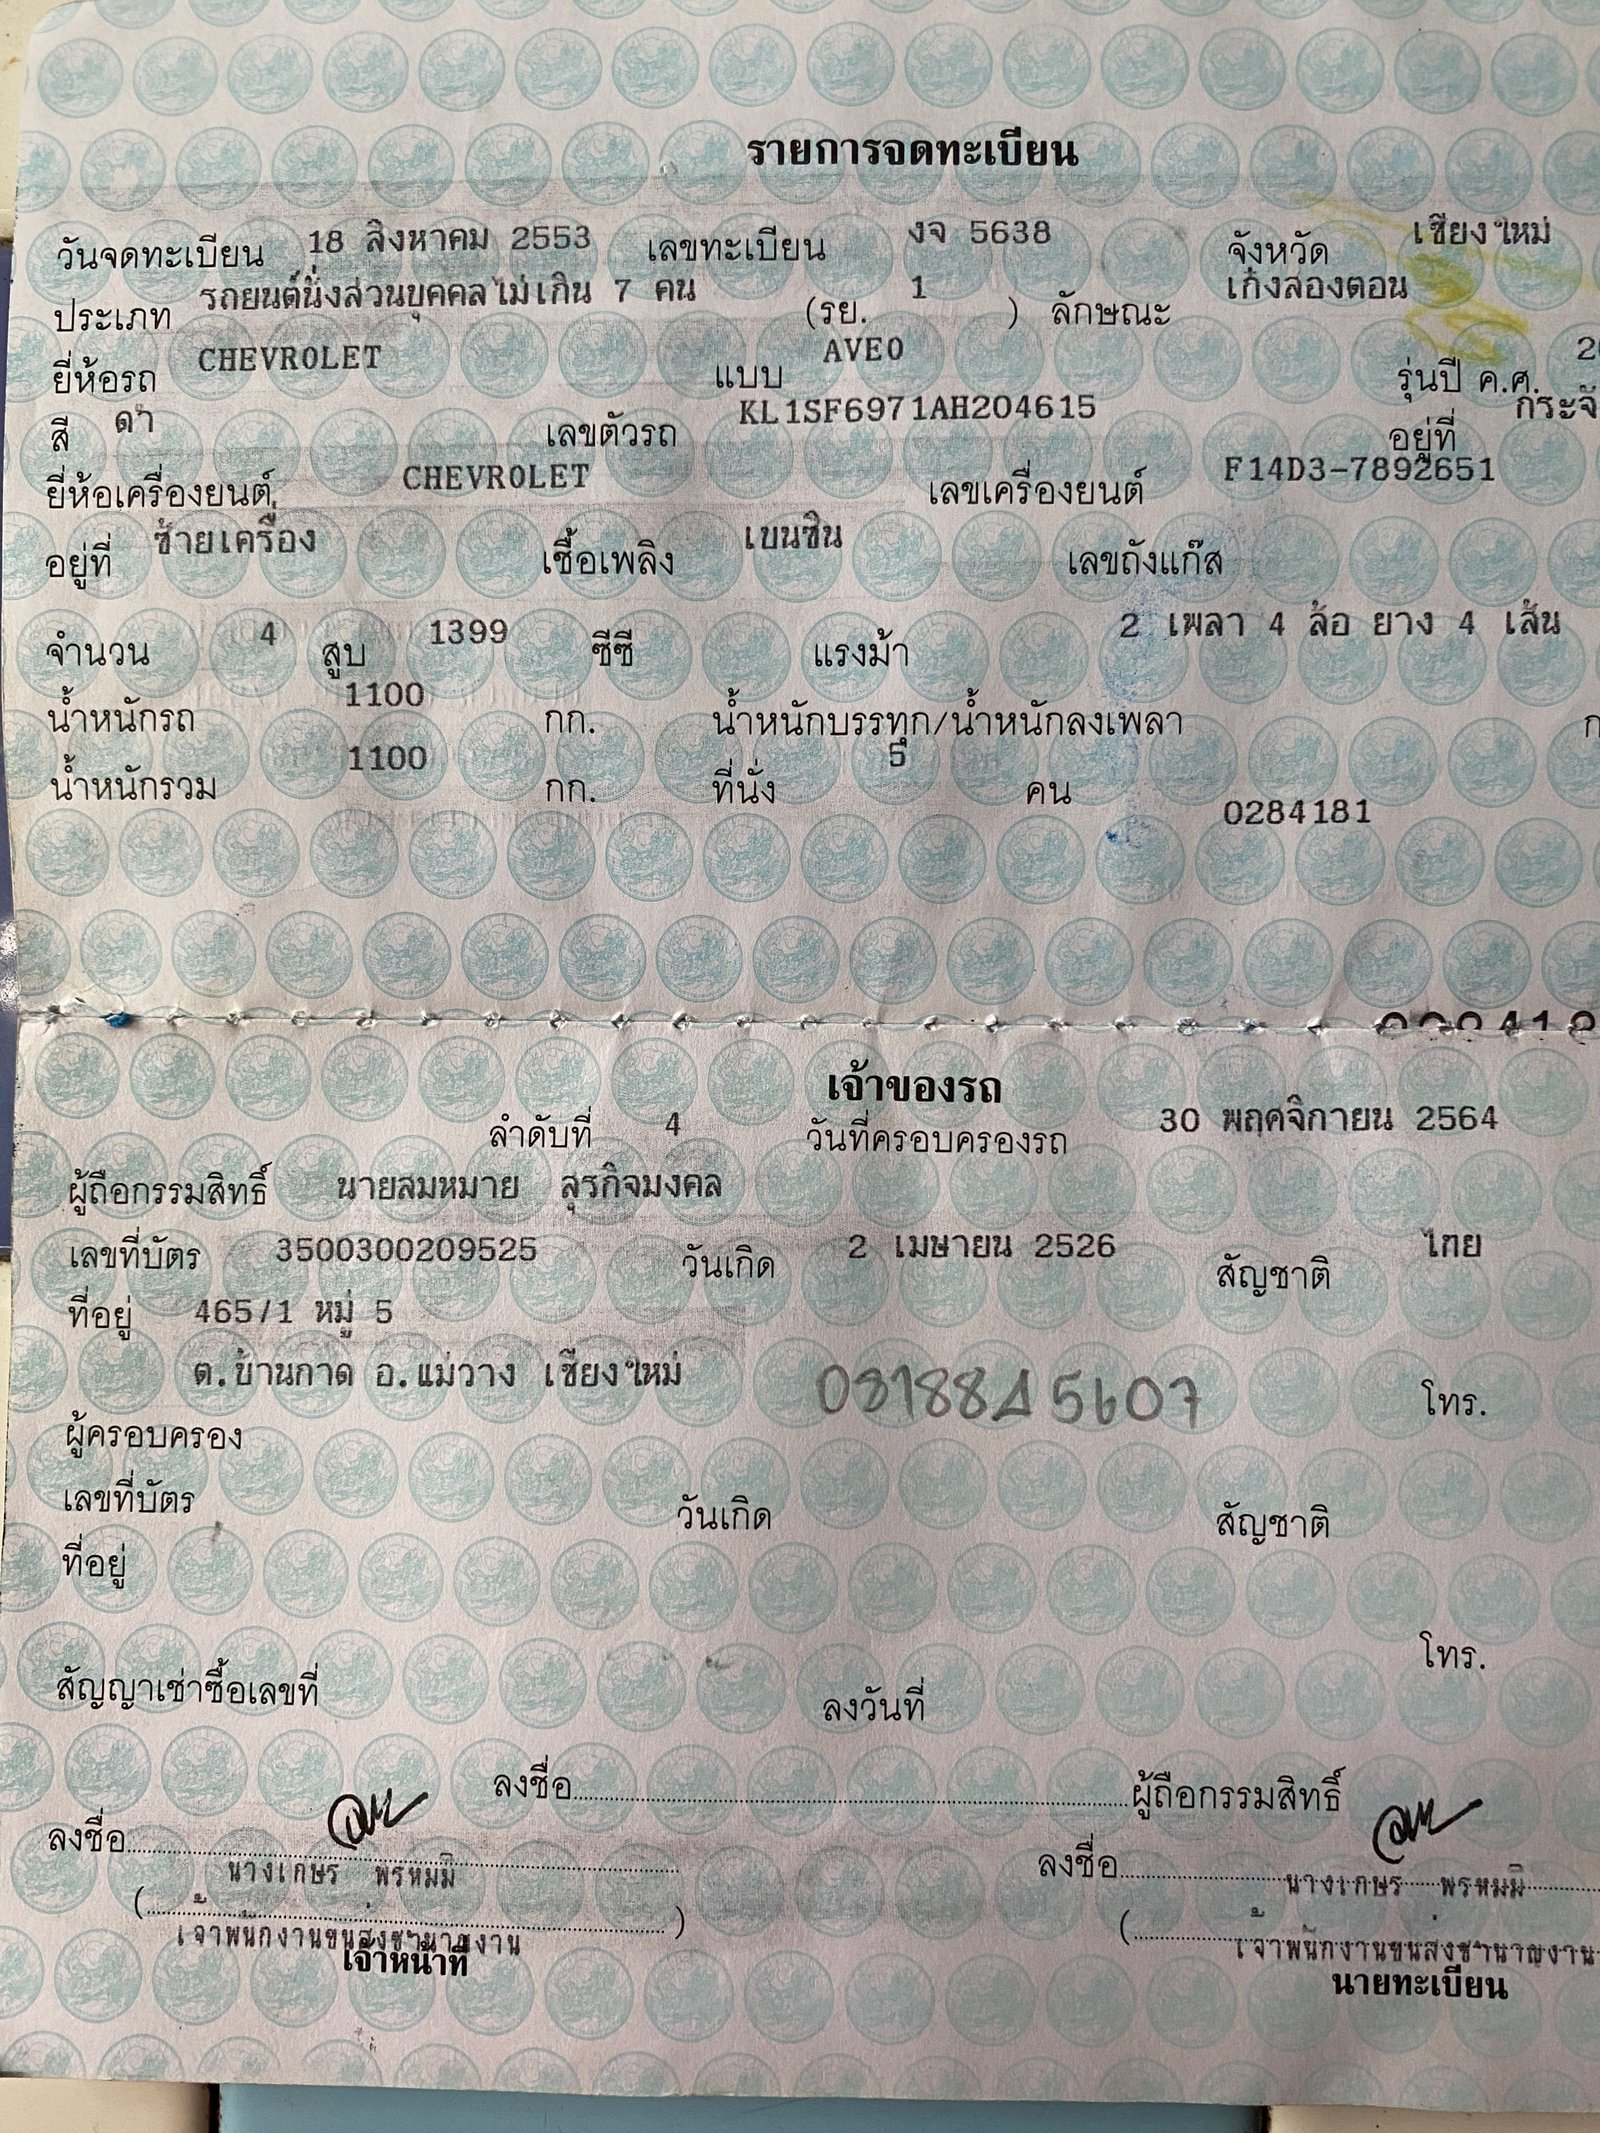 รายการจดทะเบียน
วันจดทะเบียน 18 สิงหาคม 2553 เลขทะเบียน งจ 5638 จังหวัด เชียงใหม่
ประเภท รถยนต์นั่งส่วนบุคคลไม่เกิน 7 คน (รย. 1 ) ลักษณะ เก๋งสองตอน
ยี่ห้อรถ CHEVROLET แบบ AVEO รุ่นปี ค.ศ.
สี ดำ เลขตัวรถ KL1SF6971AH204615 อยู่ที่
ยี่ห้อเครื่องยนต์ CHEVROLET เลขเครื่องยนต์ F14D3-7892651
อยู่ที่ ซ้ายเครื่อง เชื้อเพลิง เบนซิน เลขถังแก๊ส
จำนวน 4 สูบ 1399 ซีซี แรงม้า 2 เพลา 4 ล้อ ยาง 4 เส้น
น้ำหนักรถ 1100 กก. น้ำหนักบรรทุก/น้ำหนักลงเพลา
น้ำหนักรวม 1100 กก. ที่นั่ง 5 คน
0284181
เจ้าของรถ
ลำดับที่ 4 วันที่ครอบครองรถ 30 พฤศจิกายน 2564
ผู้ถือกรรมสิทธิ์ นายสมหมาย สุรกิจมงคล
เลขที่บัตร 3500300209525 วันเกิด 2 เมษายน 2526 สัญชาติ ไทย
ที่อยู่ 465/1 หมู่ 5
ต.บ้านกาด อ.แม่วาง เชียงใหม่ โทร.
ผู้ครอบครอง
เลขที่บัตร วันเกิด สัญชาติ
ที่อยู่
โทร.
สัญญาเช่าซื้อเลขที่ ลงวันที่
ลงชื่อ ผู้ถือกรรมสิทธิ์
ลงชื่อ ลงชื่อ
นางเกษร พรหมมิ นางเกษร พรหมมิ
( ) (
เจ้าพนักงานขนส่งชำนาญงาน เจ้าพนักงานขนส่งชำนาญงาน
เจ้าหน้าที่ นายทะเบียน